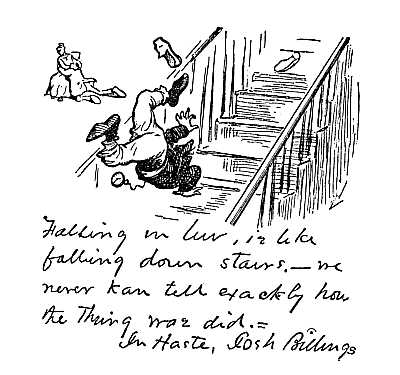 Falling in luv, iz like
falling down stairs. — we
never kan tell exactly how
the thing woz did. =
In Haste, Josh Billings